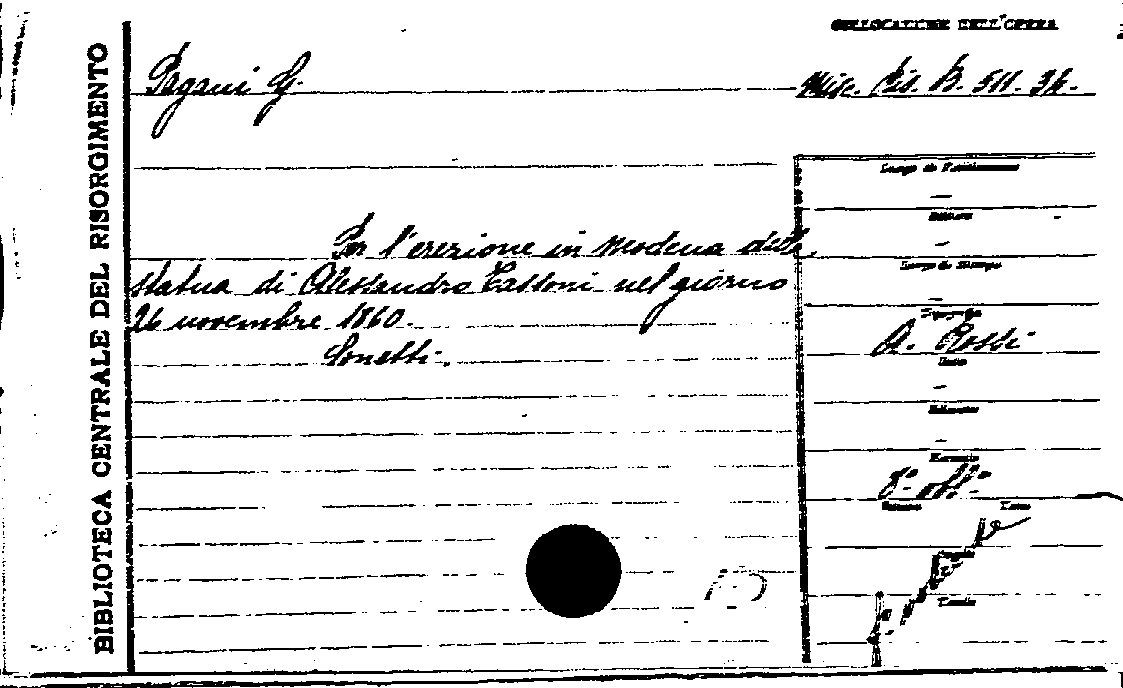 COLLOCAZIONE DELL'OPERA
BIBLIOTECA CENTRALE DEL RISORGIMENTO
Pagani G.
Misc. Ris. B. 511. 34.
Per l'erezione in Modena della
statua di Alessandro Tassoni nel giorno
26 novembre 1860.
Sonetti.
Luogo di Pubblicazione
—
Editore
—
Luogo di Stampa
—
Tipografia
A. Rossi
Data
—
Edizione
—
Formato
8°